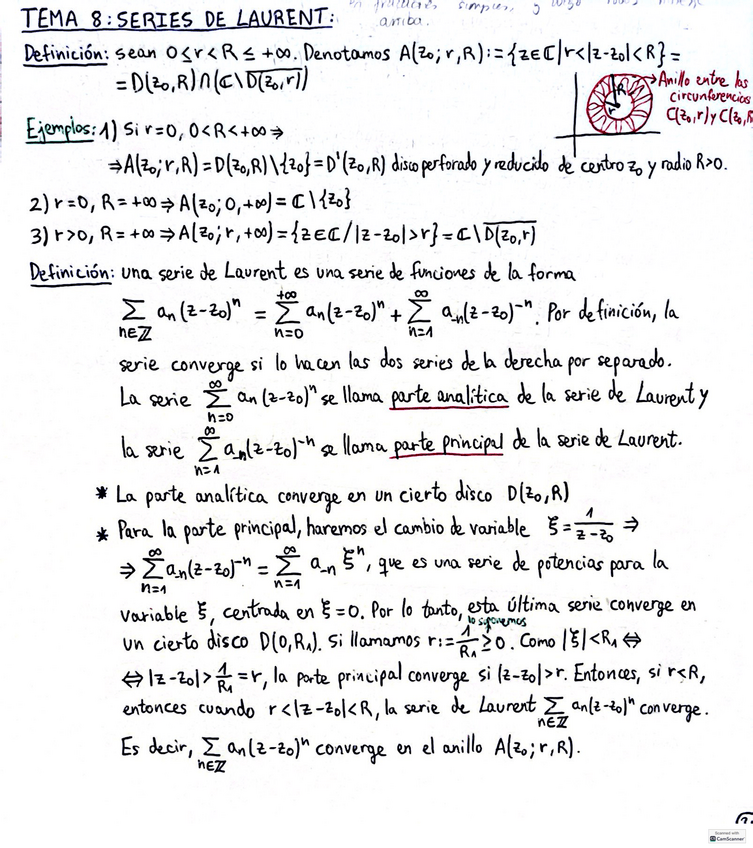 en fracciones simples, y luego
TEMA 8: SERIES DE LAURENT:
arriba.
Definición: sean 0≤r<R≤+∞. Denotamos A(z₀;r,R):={z∈ℂ/r<|z-z₀|<R}=
=D(z₀,R)∩(ℂ\overline{D(z₀,r)})
R
r
→Anillo entre las
circunferencias
C(z₀,r) y C(z₀,R
Ejemplos: 1) Si r=0, 0<R<+∞ ⇒
⇒A(z₀;r,R)=D(z₀,R)\{z₀}=D'(z₀,R) disco perforado y reducido de centro z₀ y radio R>0.
2) r=0, R=+∞ ⇒ A(z₀;0,+∞)=ℂ\{z₀}
3) r>0, R=+∞ ⇒ A(z₀;r,+∞)={z∈ℂ/|z-z₀|>r}=ℂ\overline{D(z₀,r)}
Definición: una serie de Laurent es una serie de funciones de la forma
∑_{n∈ℤ} aₙ(z-z₀)ⁿ = ∑_{n=0}^{+∞} aₙ(z-z₀)ⁿ + ∑_{n=1}^{∞} a₋ₙ(z-z₀)⁻ⁿ. Por definición, la
serie converge si lo hacen las dos series de la derecha por separado.
La serie ∑_{n=0}^{∞} aₙ(z-z₀)ⁿ se llama parte analítica de la serie de Laurent y
la serie ∑_{n=1}^{∞} a₋ₙ(z-z₀)⁻ⁿ se llama parte principal de la serie de Laurent.
* La parte analítica converge en un cierto disco D(z₀,R)
* Para la parte principal, haremos el cambio de variable ξ=1/(z-z₀) ⇒
⇒ ∑_{n=1}^{∞} a₋ₙ(z-z₀)⁻ⁿ = ∑_{n=1}^{∞} a₋ₙ ξⁿ, que es una serie de potencias para la
variable ξ, centrada en ξ=0. Por lo tanto, esta última serie converge en
lo suponemos
un cierto disco D(0,R₁). Si llamamos r:=1/R₁≥0. Como |ξ|<R₁ ⇔
⇔|z-z₀|>1/R₁=r, la parte principal converge si |z-z₀|>r. Entonces, si r<R,
entonces cuando r<|z-z₀|<R, la serie de Laurent ∑_{n∈ℤ} aₙ(z-z₀)ⁿ converge.
Es decir, ∑_{n∈ℤ} aₙ(z-z₀)ⁿ converge en el anillo A(z₀;r,R).
Scanned with
CamScanner